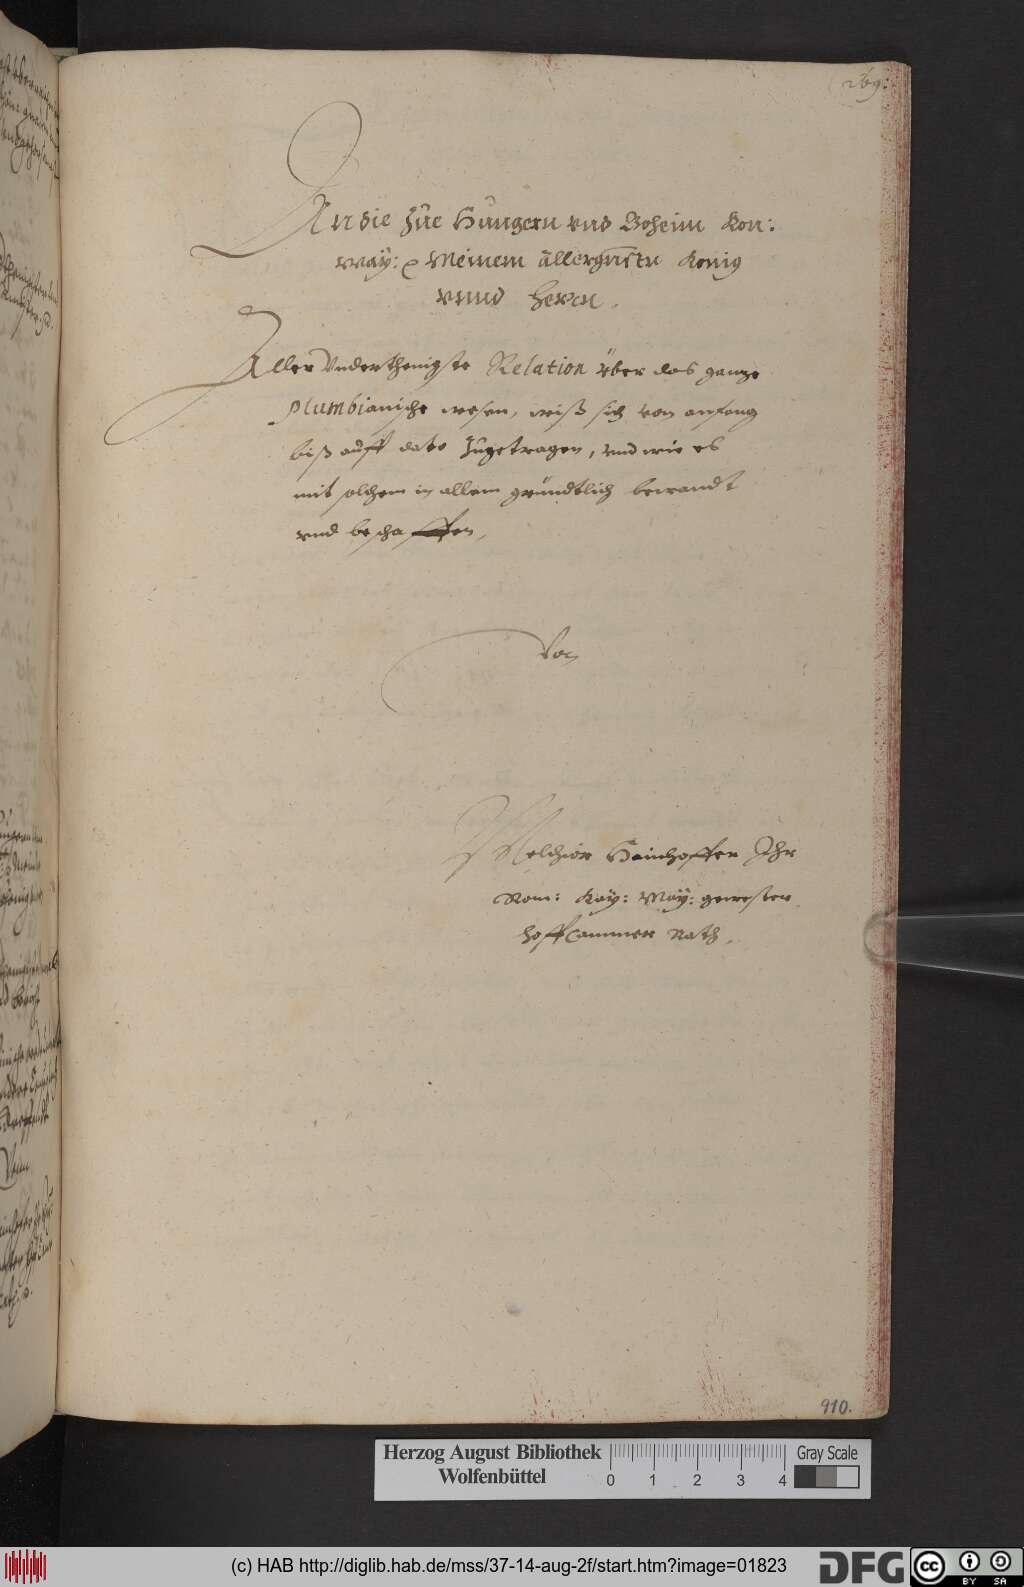 269.
An die Zue Hungern vnd Boheim Kön:
May: ꝛc Meinem allergnēsten König
vnnd Herrn.
Aller Vnderthenigste Relation über das ganze
Plumbianische wesen, weiß sich von anfang
biß auff dato Zugetragen, vnd wie es
mit solchem in allem gründtlich bewandt
vnd beschaffen,
Von
Melchior Hainhoffer Ihr
Röm: Kay: May: gewesten
Hoff Cammer Rath.
910.
Herzog August Bibliothek
Wolfenbüttel
0 1 2 3 4
Gray Scale
(c) HAB http://diglib.hab.de/mss/37-14-aug-2f/start.htm?image=01823
DFG
cc BY SA